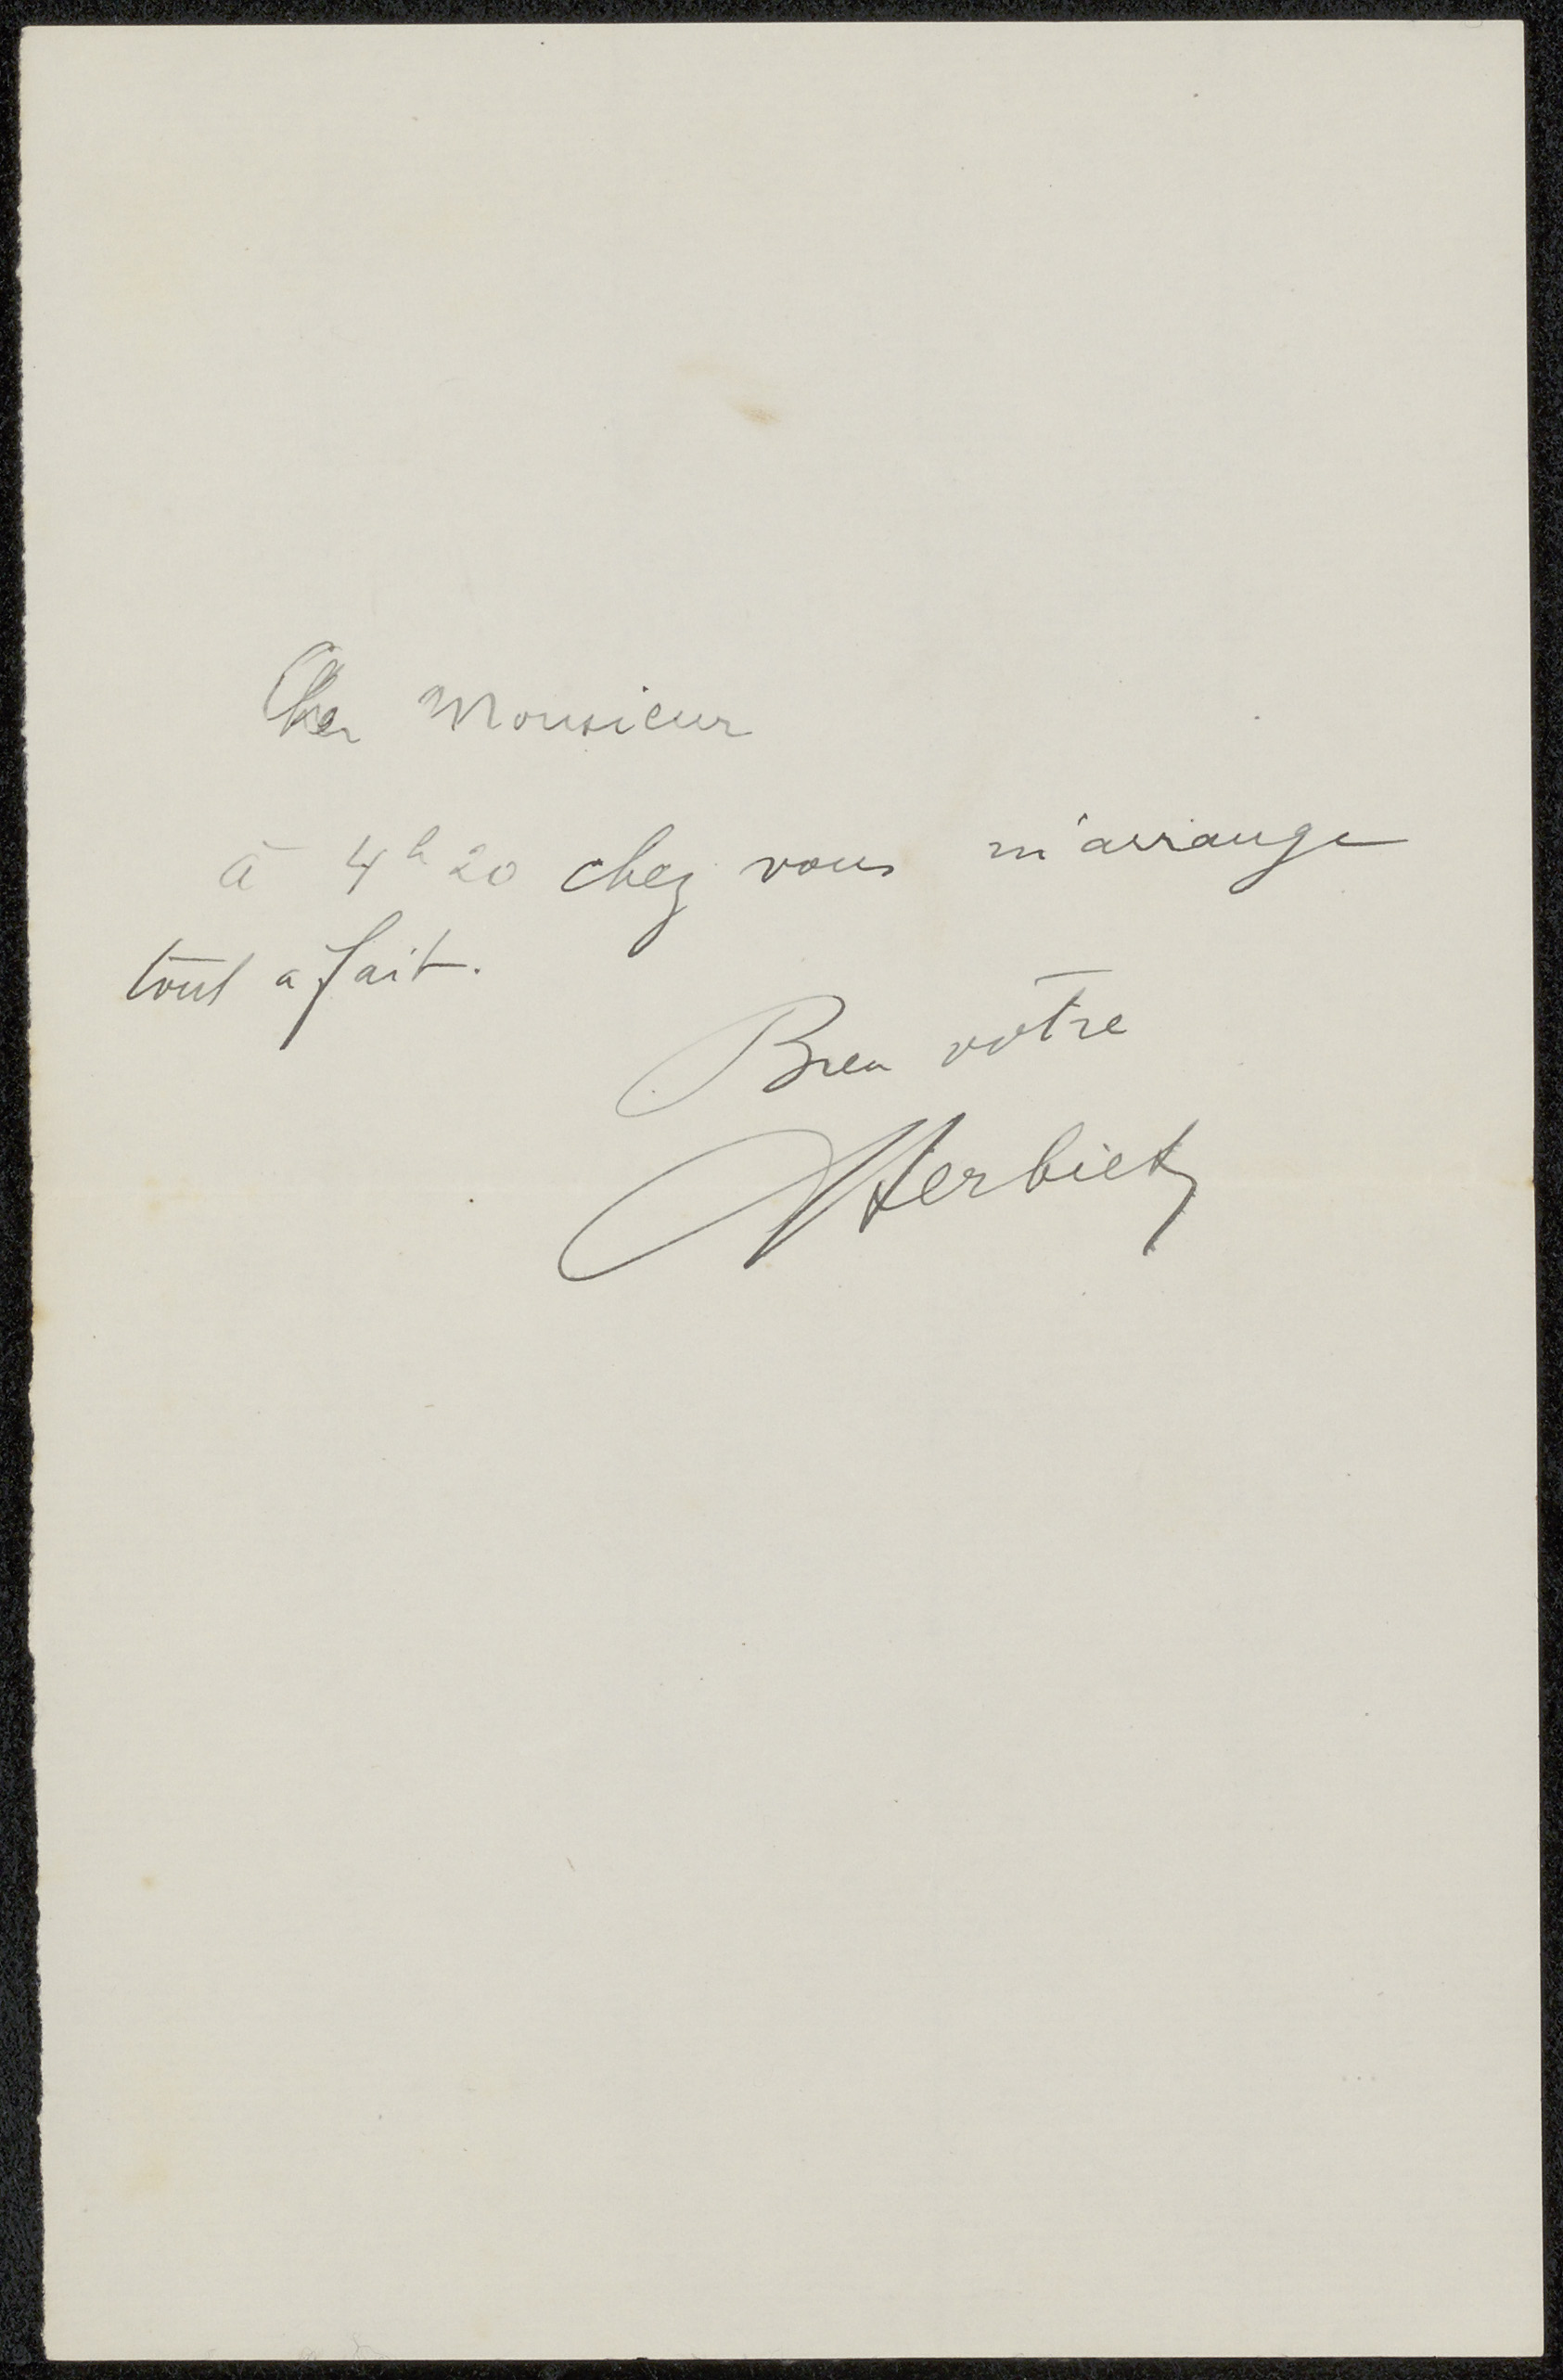 Cher Monsieur
à 4h 20 chez vous m'arrange
tout a fait.
Bien votre
Herbiet